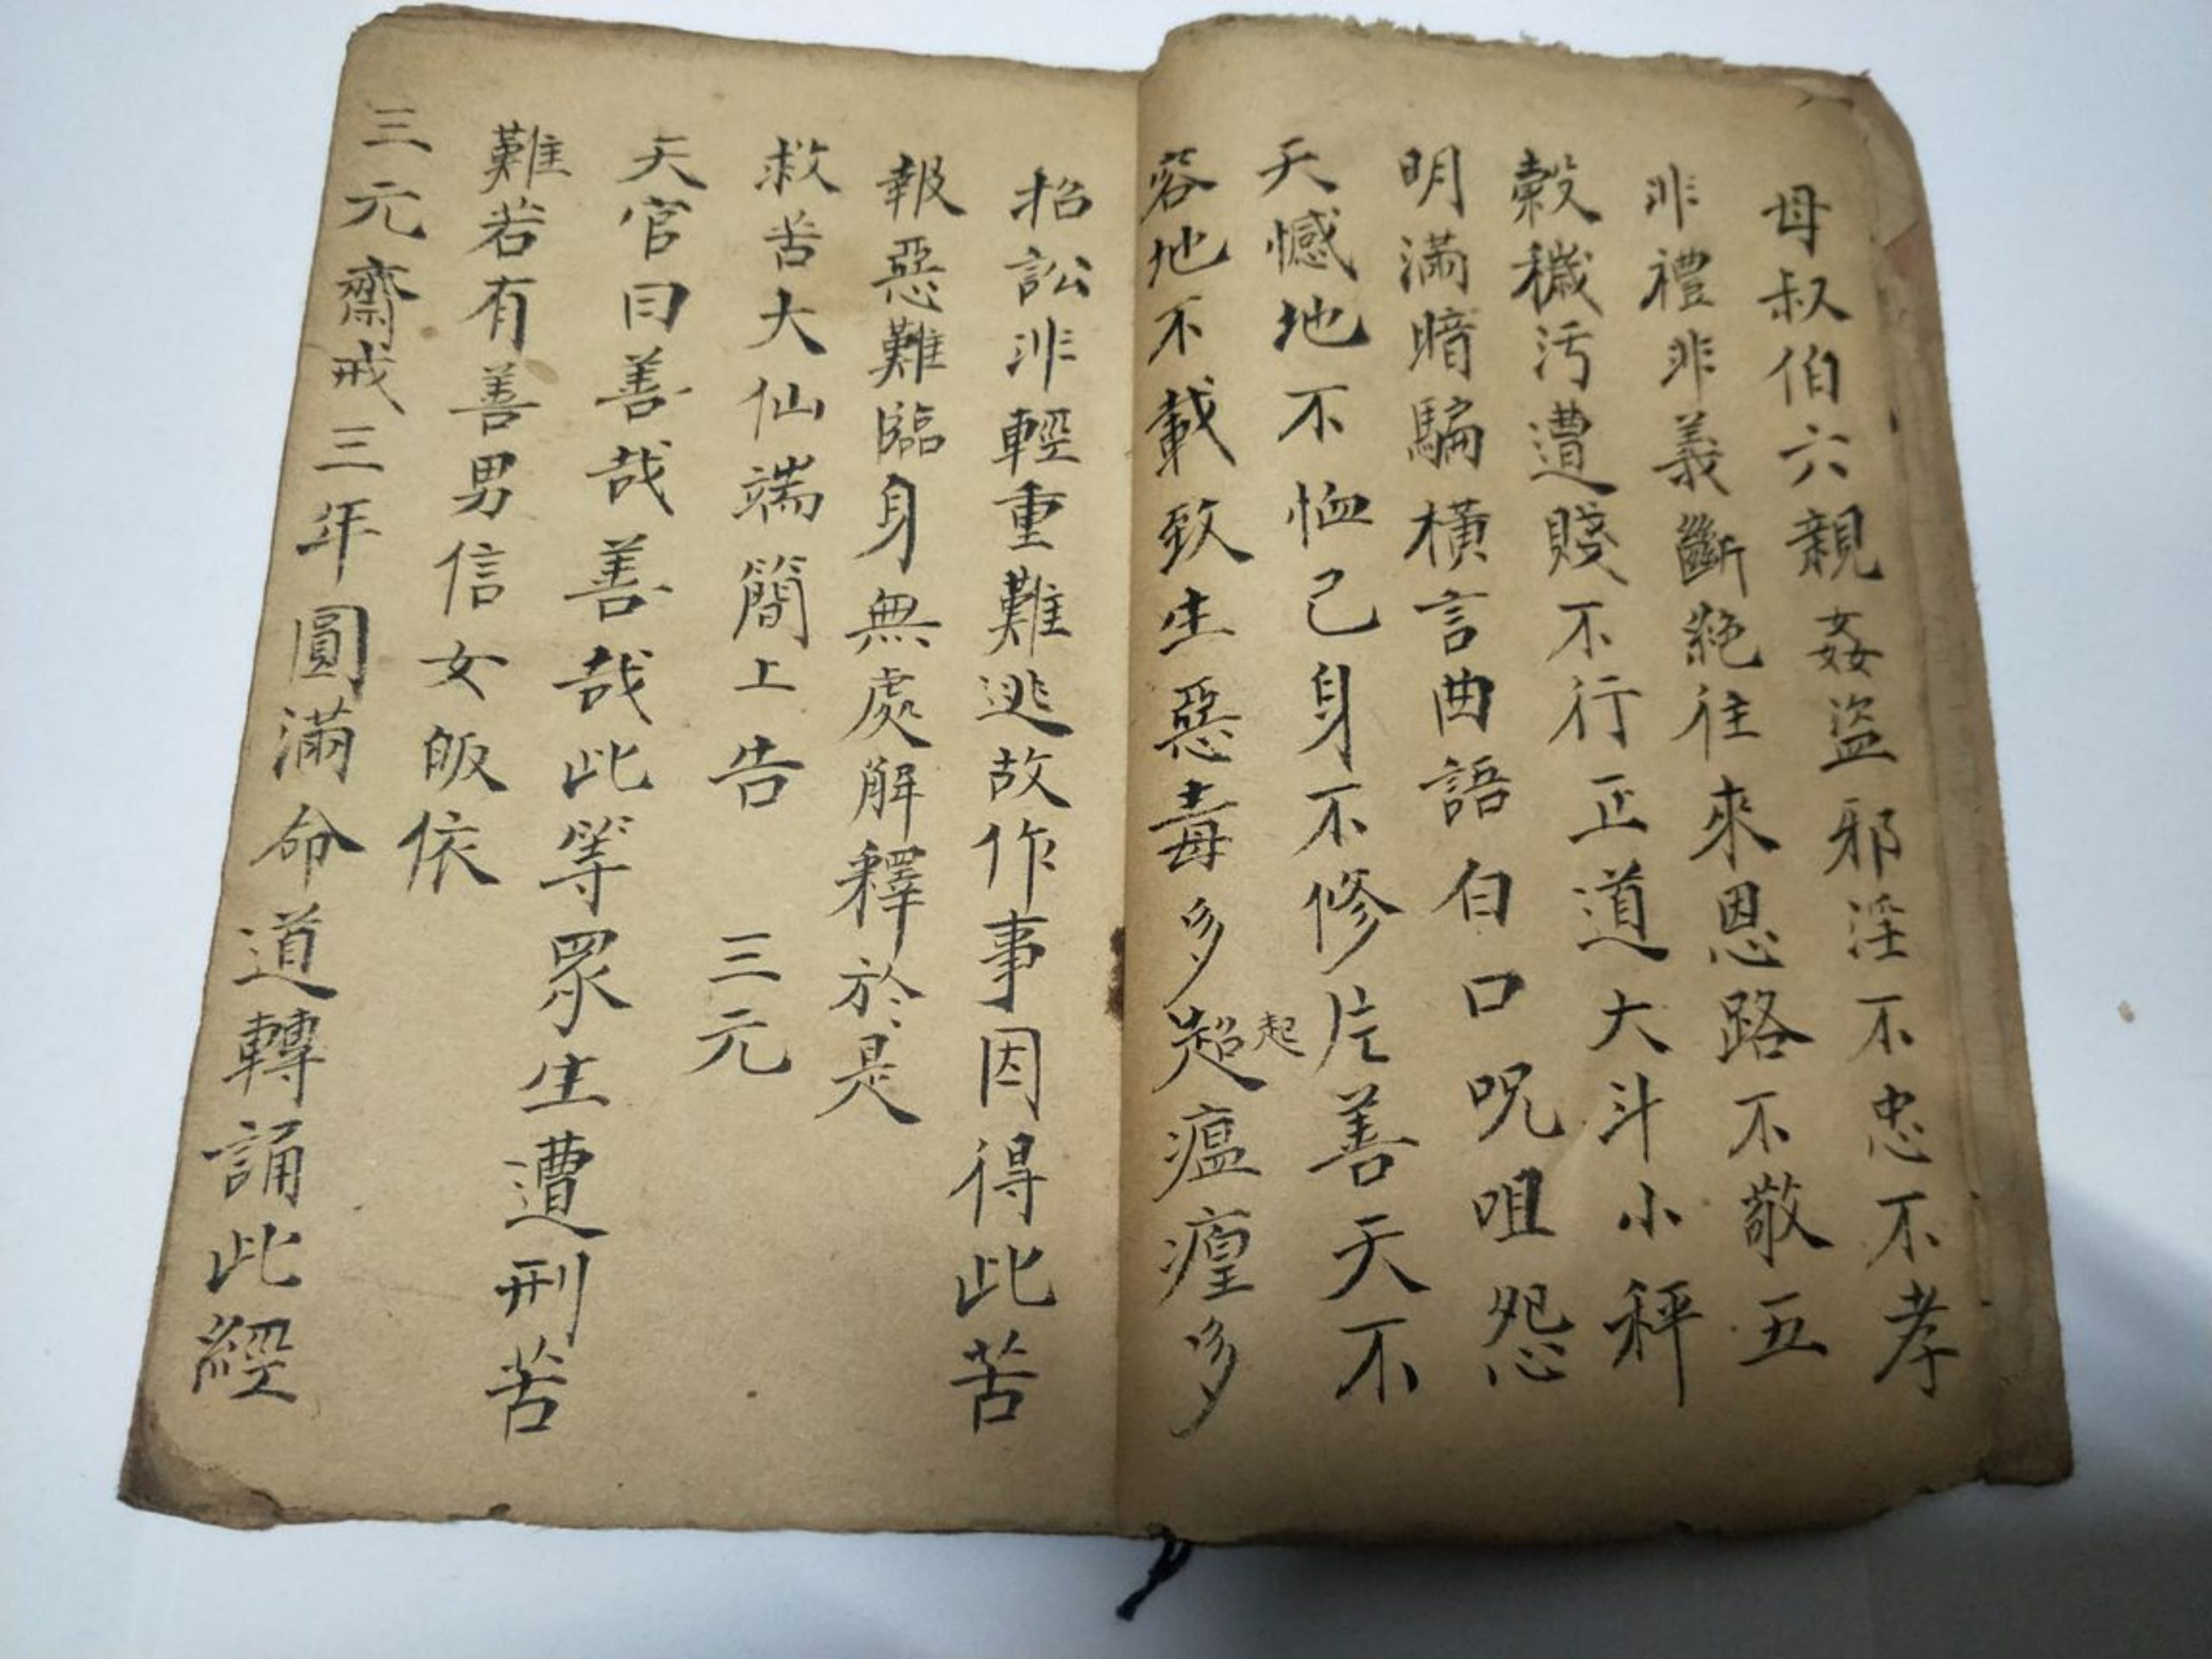 母叔伯六親姦盜邪淫不忠不孝
非禮非義斷絶往來恩路不敬五
穀穢污遭賤不行正道大斗小秤
明滿暗騙橫言曲語白口呪咀怨
天憾地不恤己身不修片善天不
容地不載致生惡毒多超瘟㾮多
起
招訟非輕重難逃故作事因得此苦
報惡難臨身無處解釋於是
救苦大仙端簡上告 三元
天官曰善哉善哉此等眾生遭刑苦
難若有善男信女皈依
三元齋戒三年圓滿命道轉誦此經